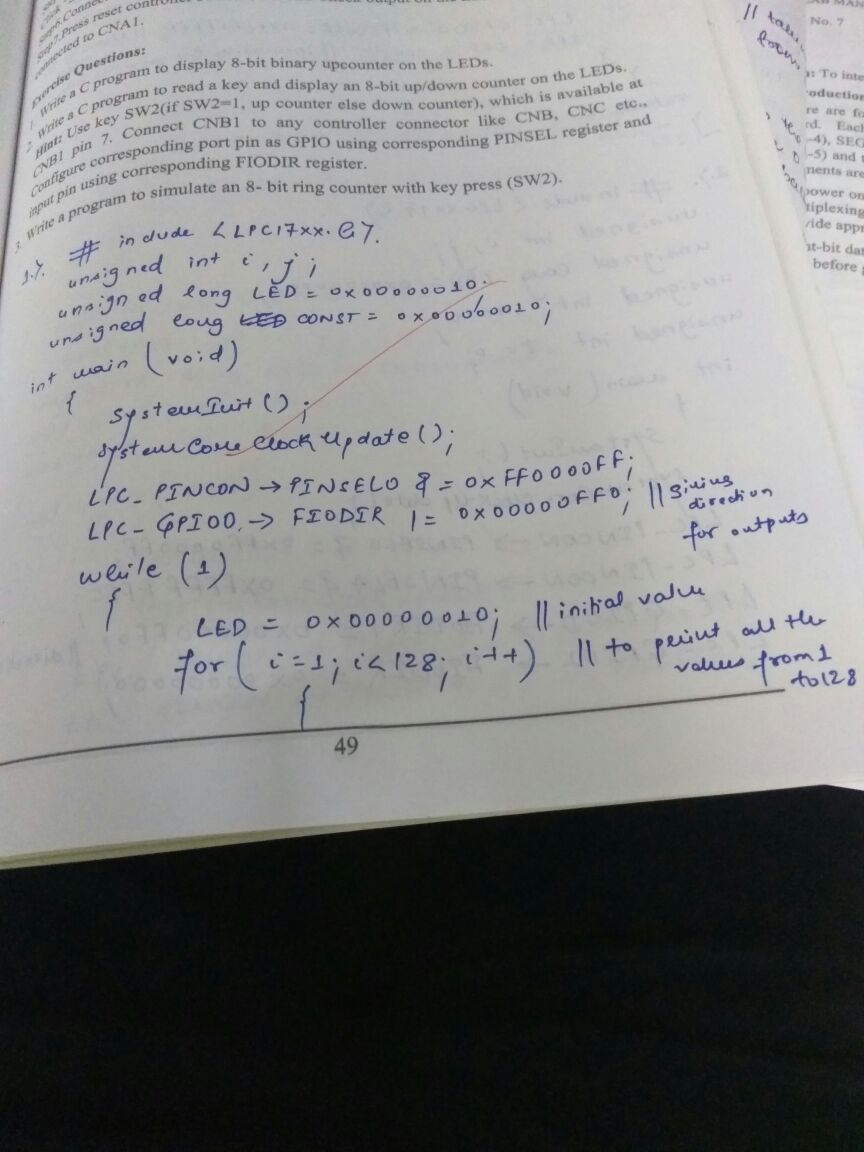 Step 7. Press reset
connected to CNA1.
Exercise Questions:
1. Write a C program to display 8-bit binary upcounter on the LEDs.
2. Write a C program to read a key and display an 8-bit up/down counter on the LEDs.
Hint: Use key SW2(if SW2=1, up counter else down counter), which is available at
CNB1 pin 7. Connect CNB1 to any controller connector like CNB, CNC etc.,
Configure corresponding port pin as GPIO using corresponding PINSEL register and
input pin using corresponding FIODIR register.
3. Write a program to simulate an 8- bit ring counter with key press (SW2).
1.7. # include <LPC17xx.h>.
unsigned int i, j;
unsigned long LED = 0x00000010.
unsigned long CONST = 0x00000010;
int main (void)
{
SystemInit();
SystemCoreClockUpdate();
LPC_PINCON → PINSEL0 &= 0xFF0000FF;
LPC_GPIO0 → FIODIR |= 0x00000FF0; // Giving
direction
for outputs
while (1)
{
LED = 0x00000010; // initial value
for (i=1; i<128; i++) // to print all the
values from 1
to 128
{
49
No. 7
: To inte
oduction
re are fo
rd. Each
-4), SEG
-5) and
nents are
power on
tiplexing
ride appr
ht-bit dat
before